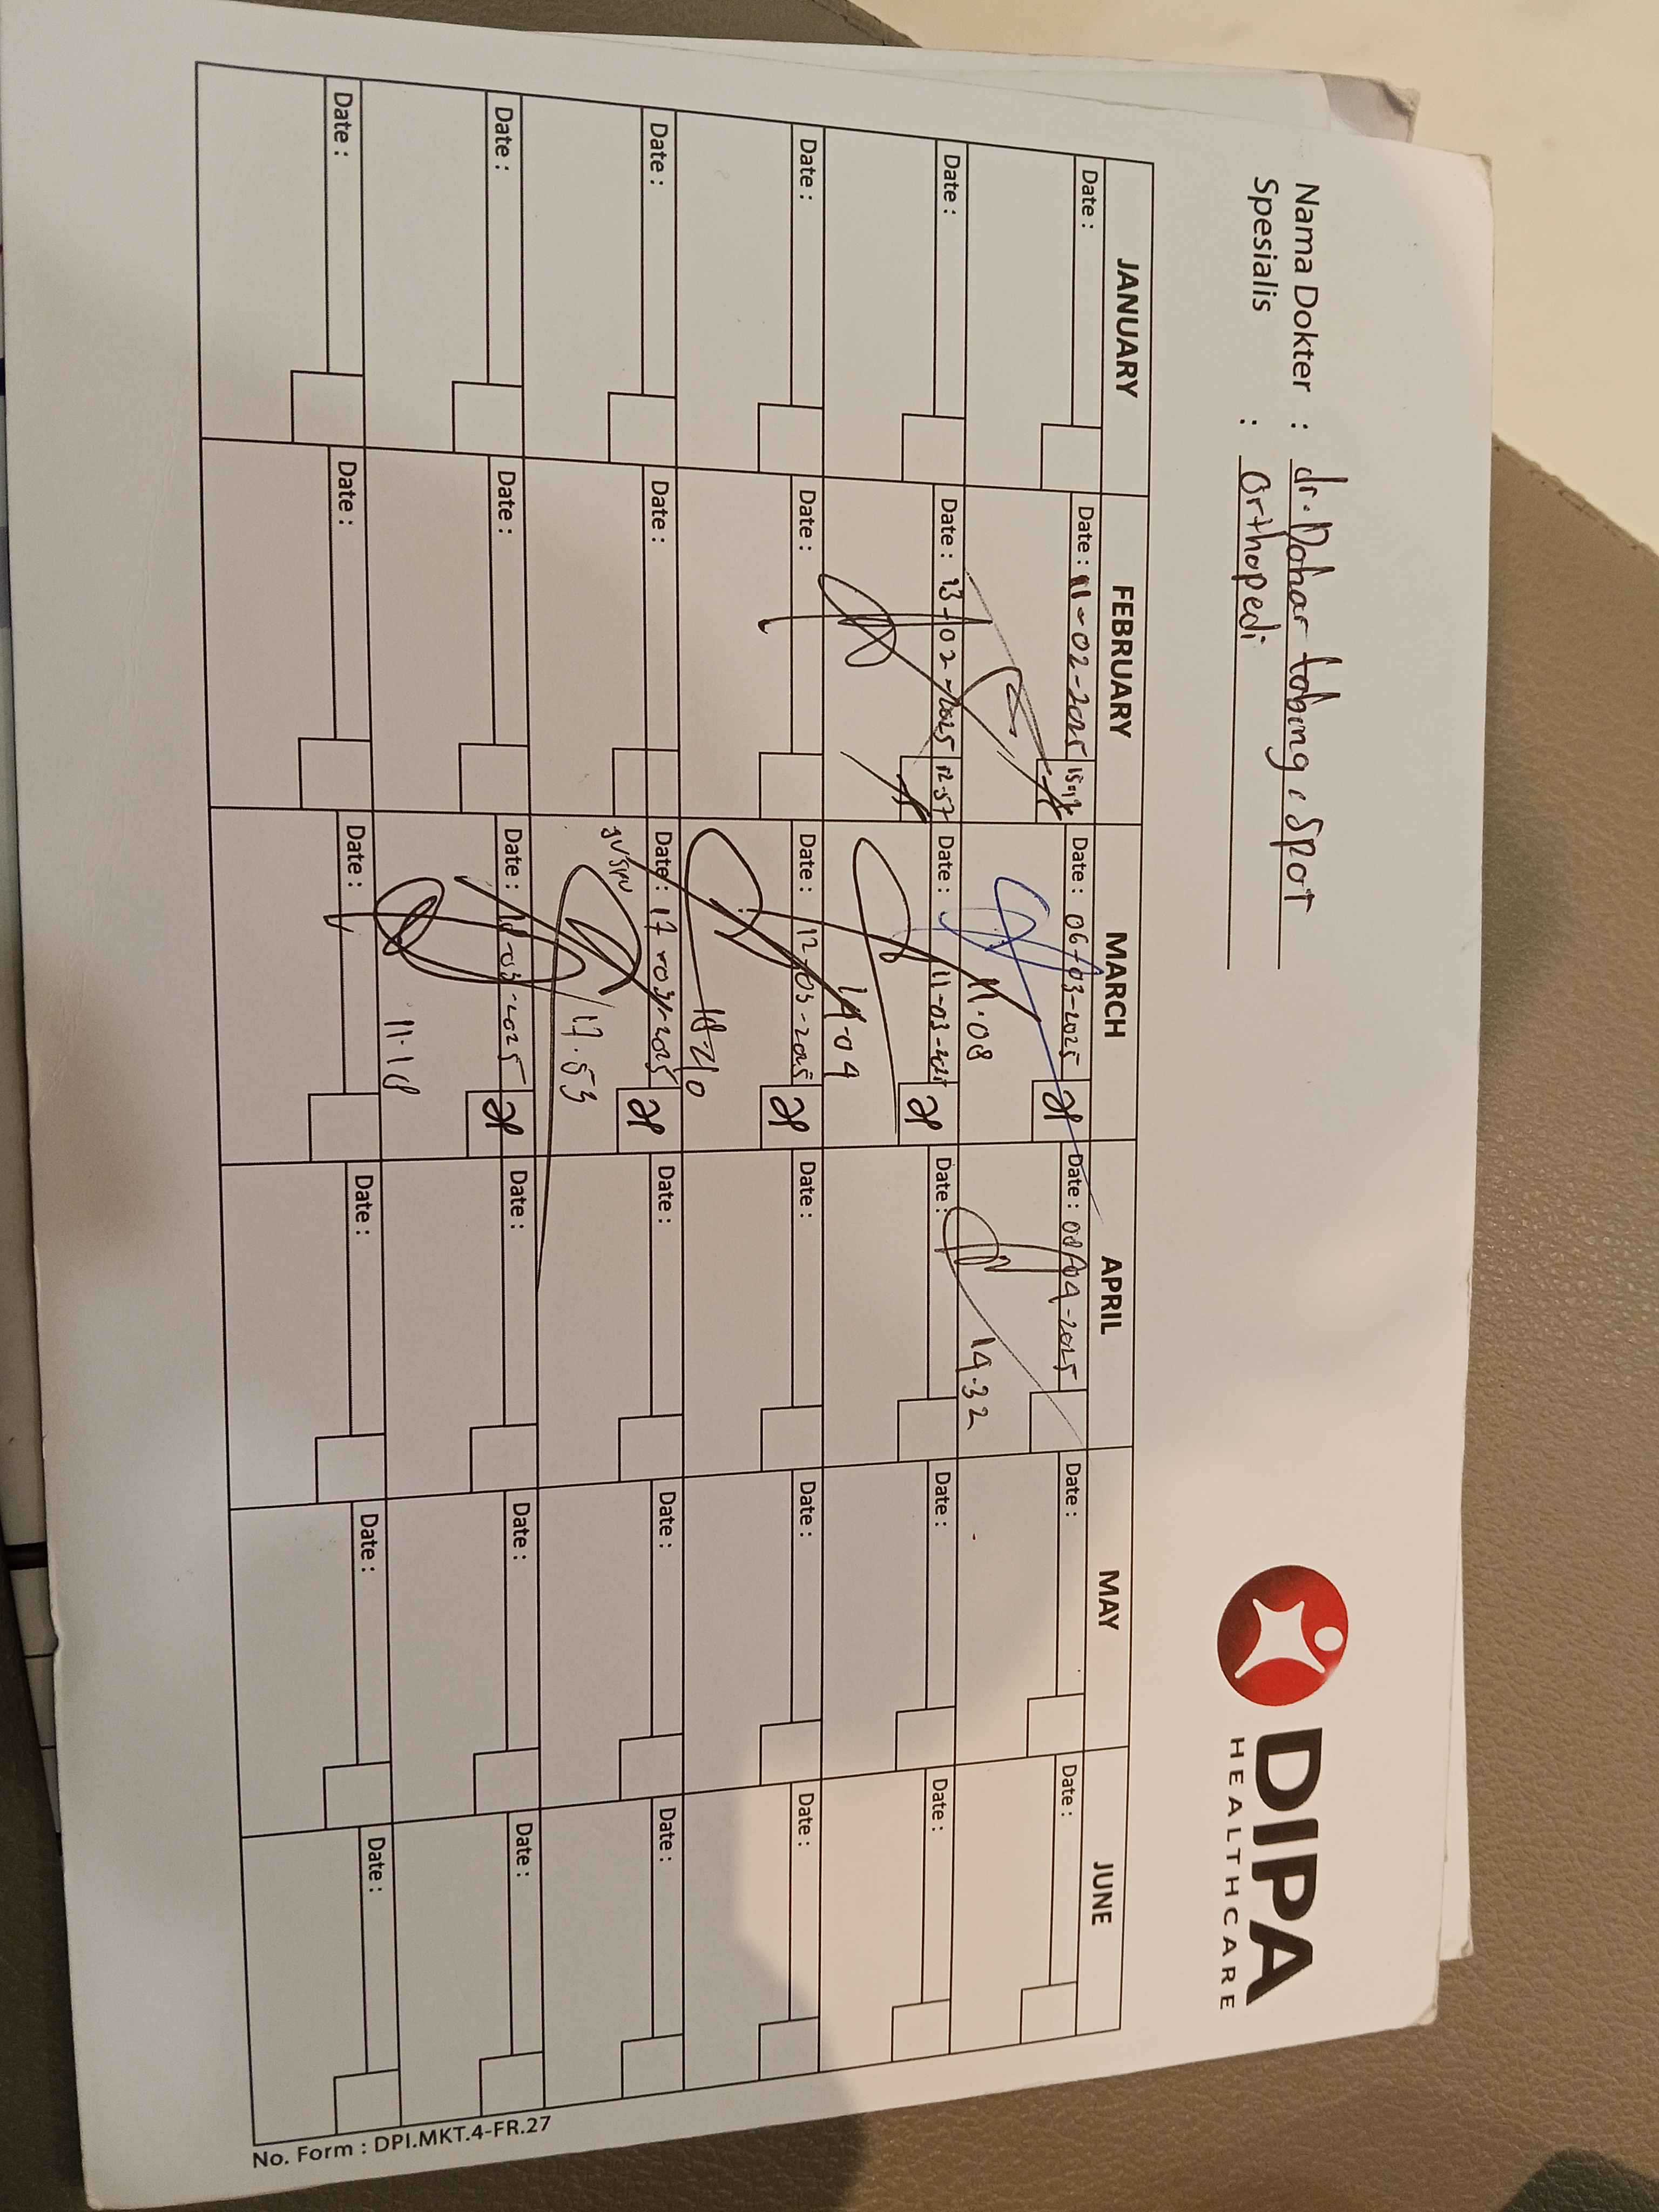 Nama Dokter : dr. Dohar tobing. Spot
Spesialis : Orthopedi
DIPA
HEALTHCARE
JANUARY FEBRUARY MARCH APRIL MAY JUNE
Date : Date : 11-02-2025 Date : 06-03-2025 Date : 08-04-2025 Date : Date :
11.08 14.32
Date : Date : 13-02-2025 12.57 Date : 11-03-2025 Date : Date : Date :
14.04
Date : Date : Date : 12-03-2025 Date : Date : Date :
Date : Date : Date : 17-03-2025 Date : Date : Date :
17.53
Date : Date : Date : 18-03-2025 Date : Date : Date :
11.18
Date : Date : Date : Date : Date : Date :
No. Form : DPI.MKT.4-FR.27